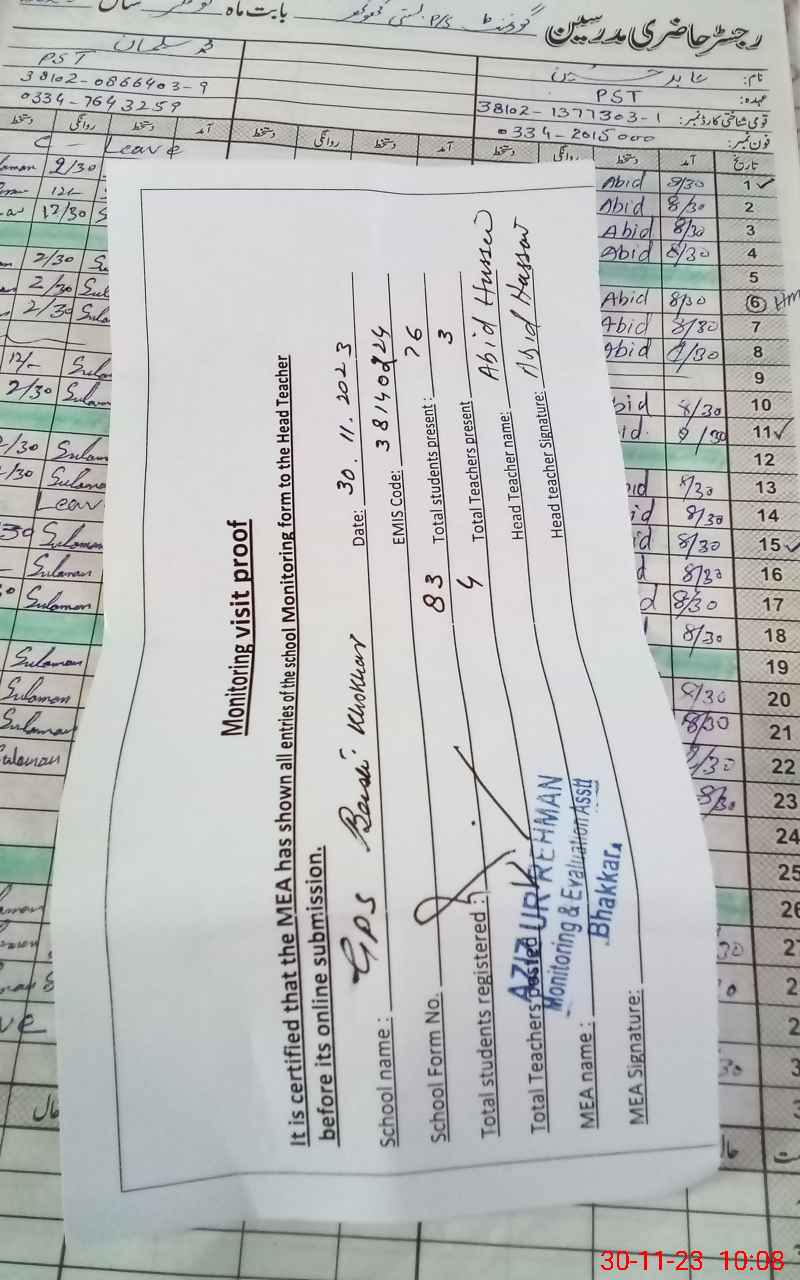 رجسٹر حاضری مدرسین
گورنمنٹ P/S بستی کھوکھر
بابت ماہ
نام: عابد حسین
عہدہ: PST
قومی شناختی کارڈ نمبر: 38102-1377303-1
فون نمبر: 0334-2015000
محمد سلیمان
PST
38102-0866403-9
0334-7643259
تاریخ آمد دستخط روانگی دستخط آمد دستخط روانگی دستخط آمد دستخط روانگی دستخط
C - Leave
1 8/30 Abid
2 8/30 Abid
3 8/30 Abid
4 8/30 Abid
5
6 8/30 Abid HM
7 8/30 Abid
8 Abid
9
10 8/30 bid
11 id
12
13 8/30 id
14 8/30 id
15 8/30 id
16 8/30 d
17 8/30 d
18 8/30
19
20 8/30
21 8/30
22 /30
23 8/30
24
25
26
2/30
12/-
12/30
2/30
2/30
2/30
12/-
2/30
Sulaman
Sulaman
Leav
Sulaman
Sulaman
Sulaman
Sulaman
Sulaman
Sulaman
Monitoring visit proof
It is certified that the MEA has shown all entries of the school Monitoring form to the Head Teacher
before its online submission.
School name : GPS Basti Khokhar Date: 30.11.2023
School Form No. EMIS Code: 38140224
Total students registered : 83 Total students present : 76
Total Teachers posted 4 Total Teachers present 3
MEA name : Head Teacher name: Abid Hussain
MEA Signature: Head teacher Signature: Abid Hussain
AZIZ UR REHMAN
Monitoring & Evaluation Asstt
Bhakkar.
30-11-23 10:08